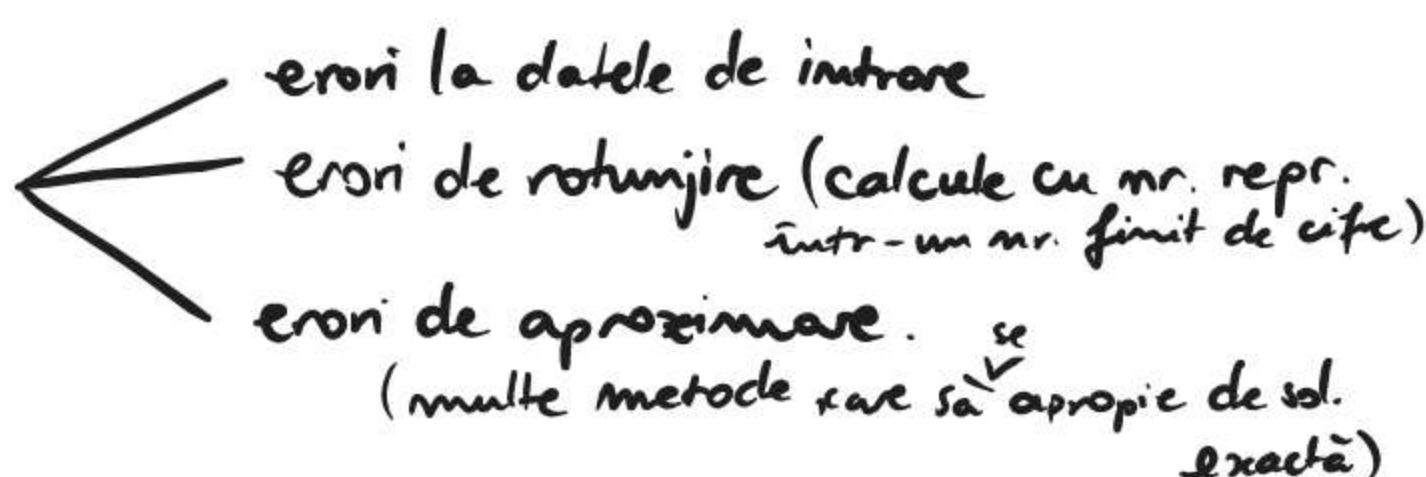 erori la datele de intrare
erori de rotunjire (calcule cu nr. repr.
într-un nr. finit de cifre)
erori de aproximare.
(multe metode care să se apropie de sol.
exactă)